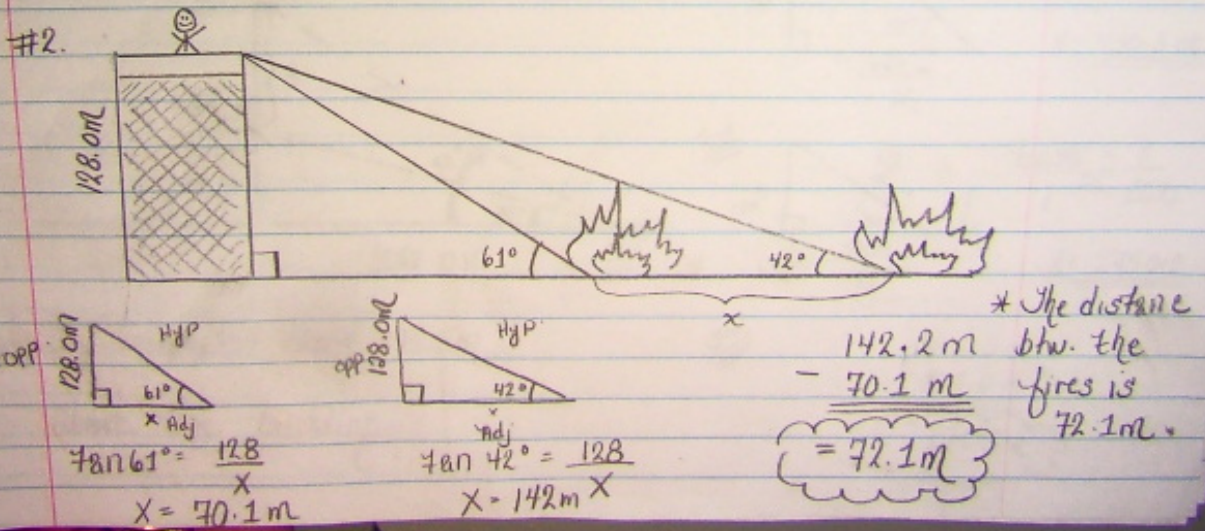 #2.
128.0m
61°
42°
x
OPP
128.0m
HYP
61°
x Adj
Tan 61° = 128
x
X = 70.1m
OPP
128.0m
HYP
42°
x
Adj
Tan 42° = 128
X
X = 142m
142.2m
- 70.1 m
= 72.1m
* The distance
btw. the
fires is
72.1m.